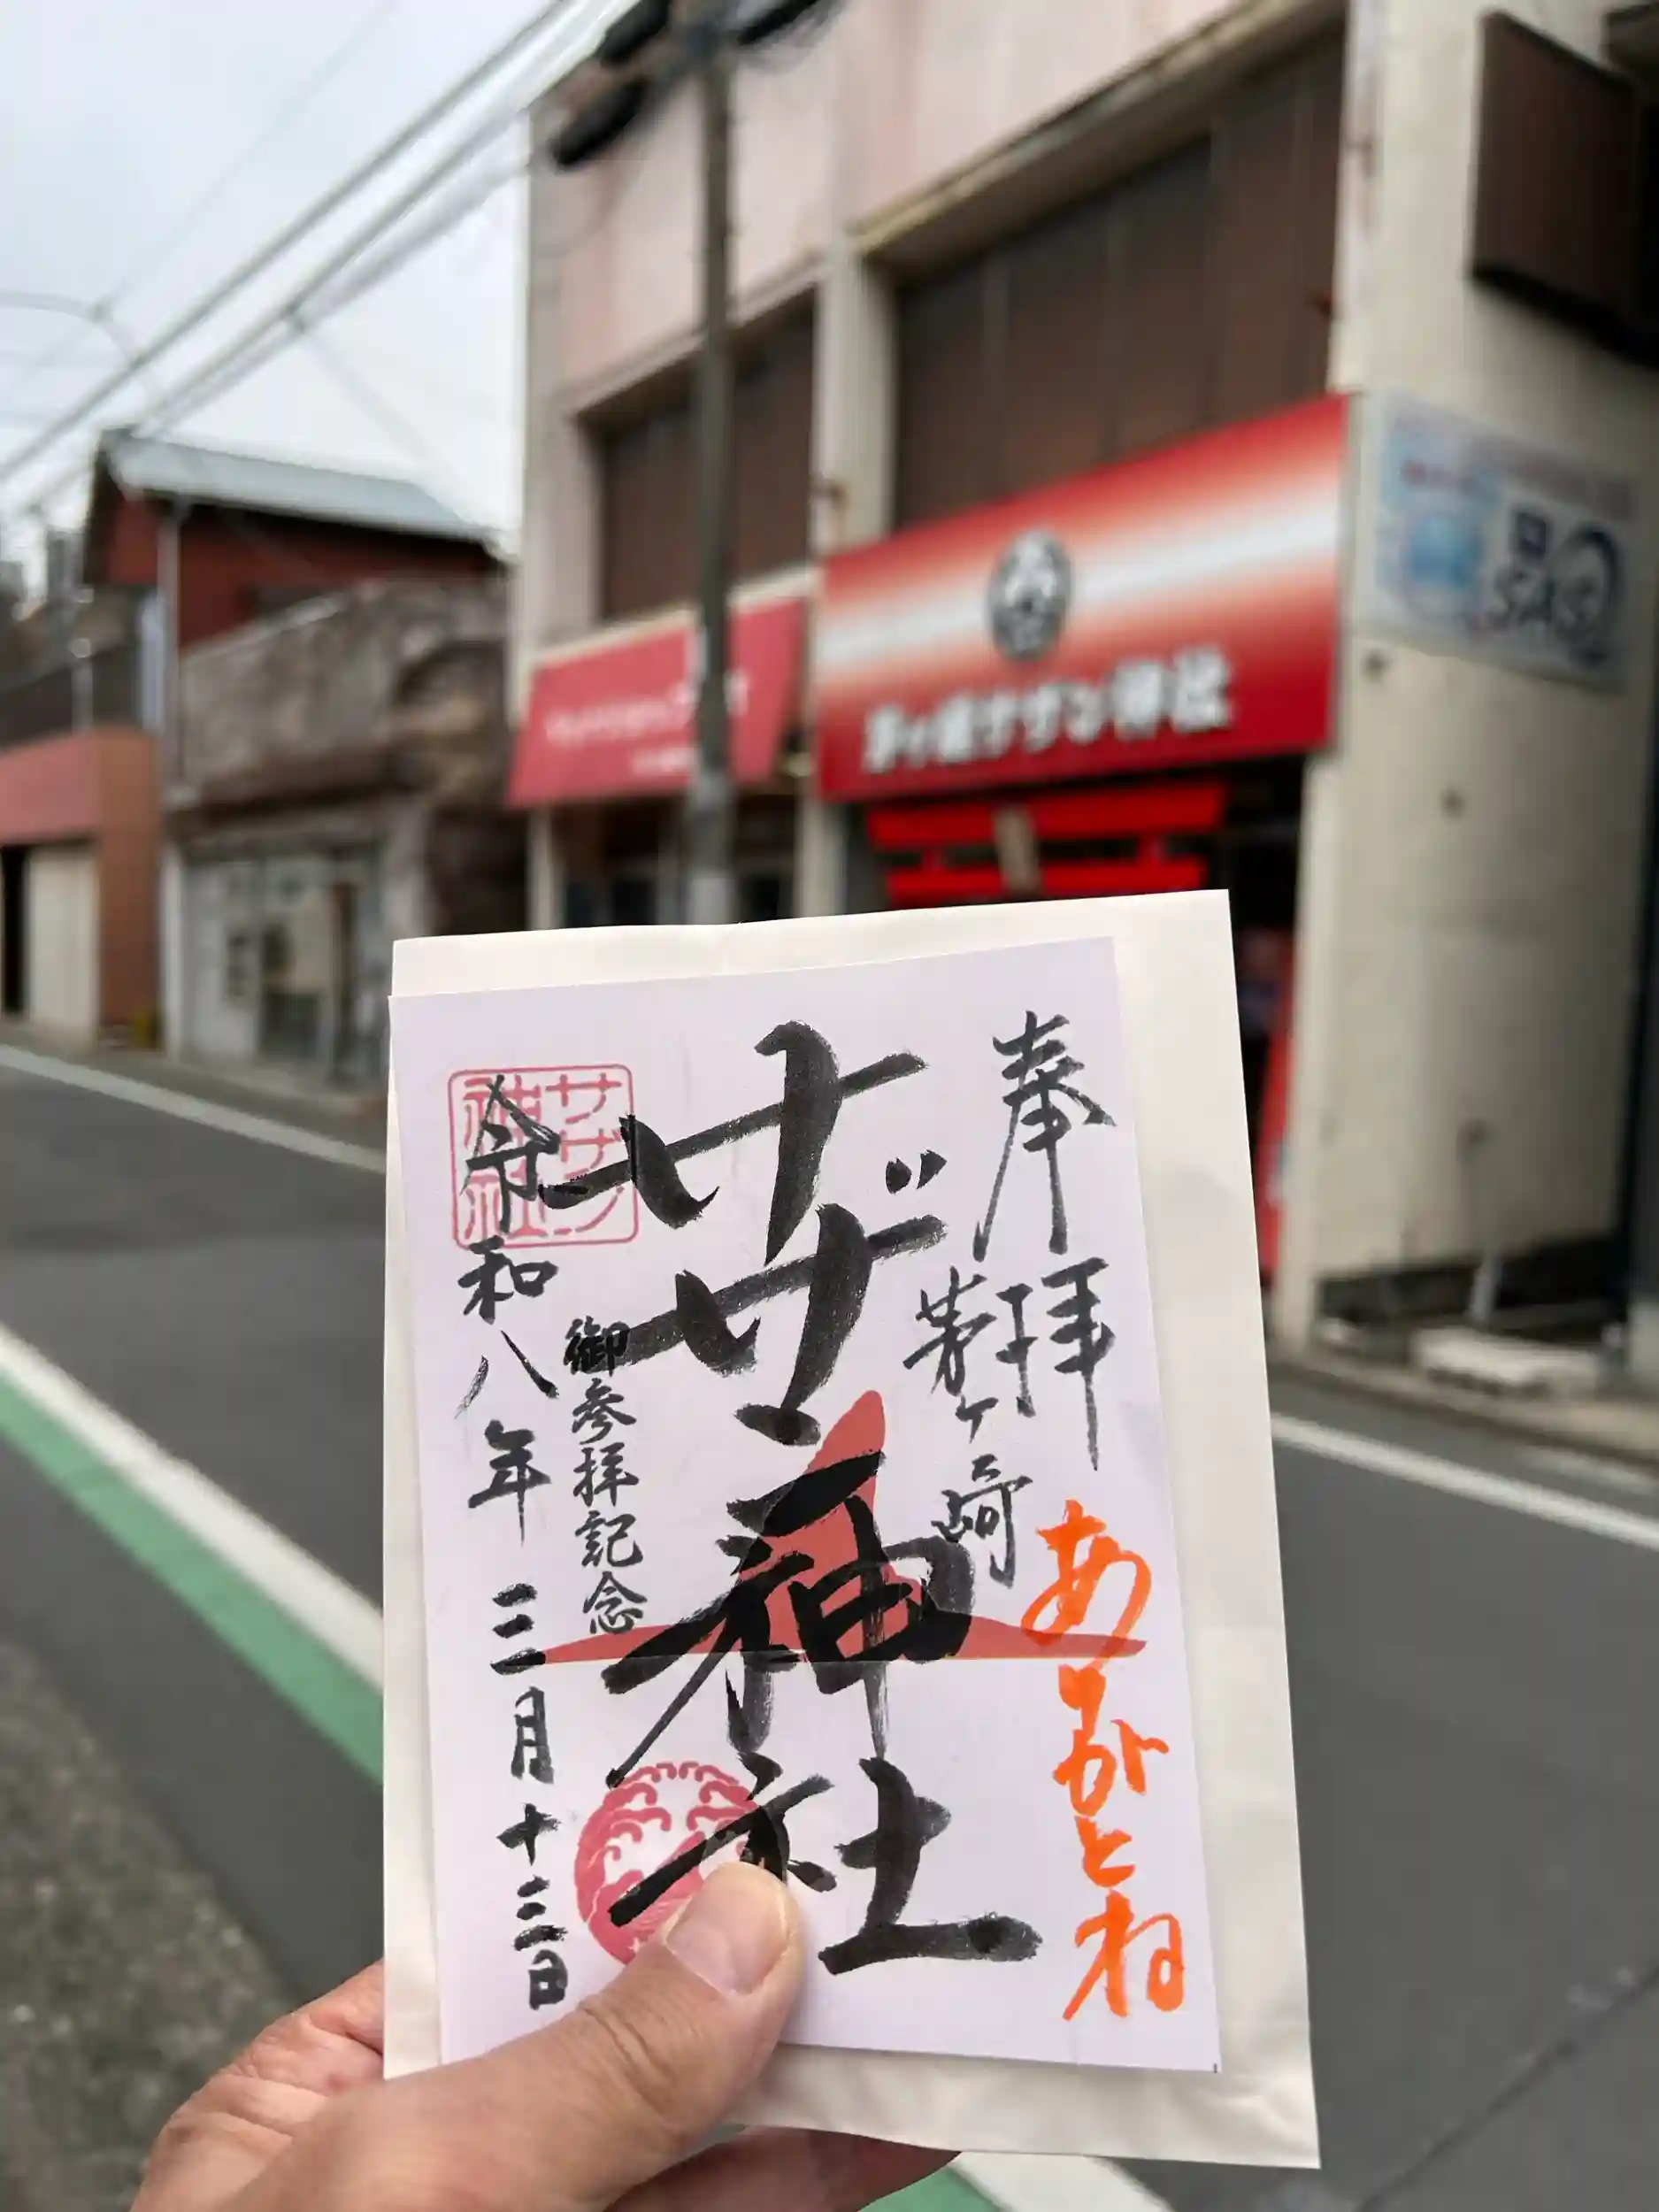 茅ヶ崎サザン神社
奉拝
茅ヶ崎
ありがとね
サザン神社
御参拝記念
令和八年三月十三日
サザン
神社